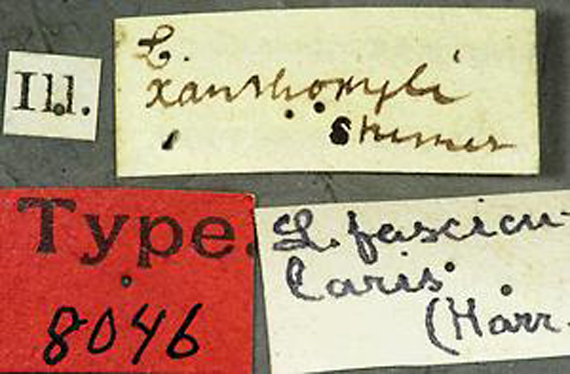 Ill.
L.
xanthoxyli
Shimer
Type.
8046
L. fascicu-
laris
(Harr.